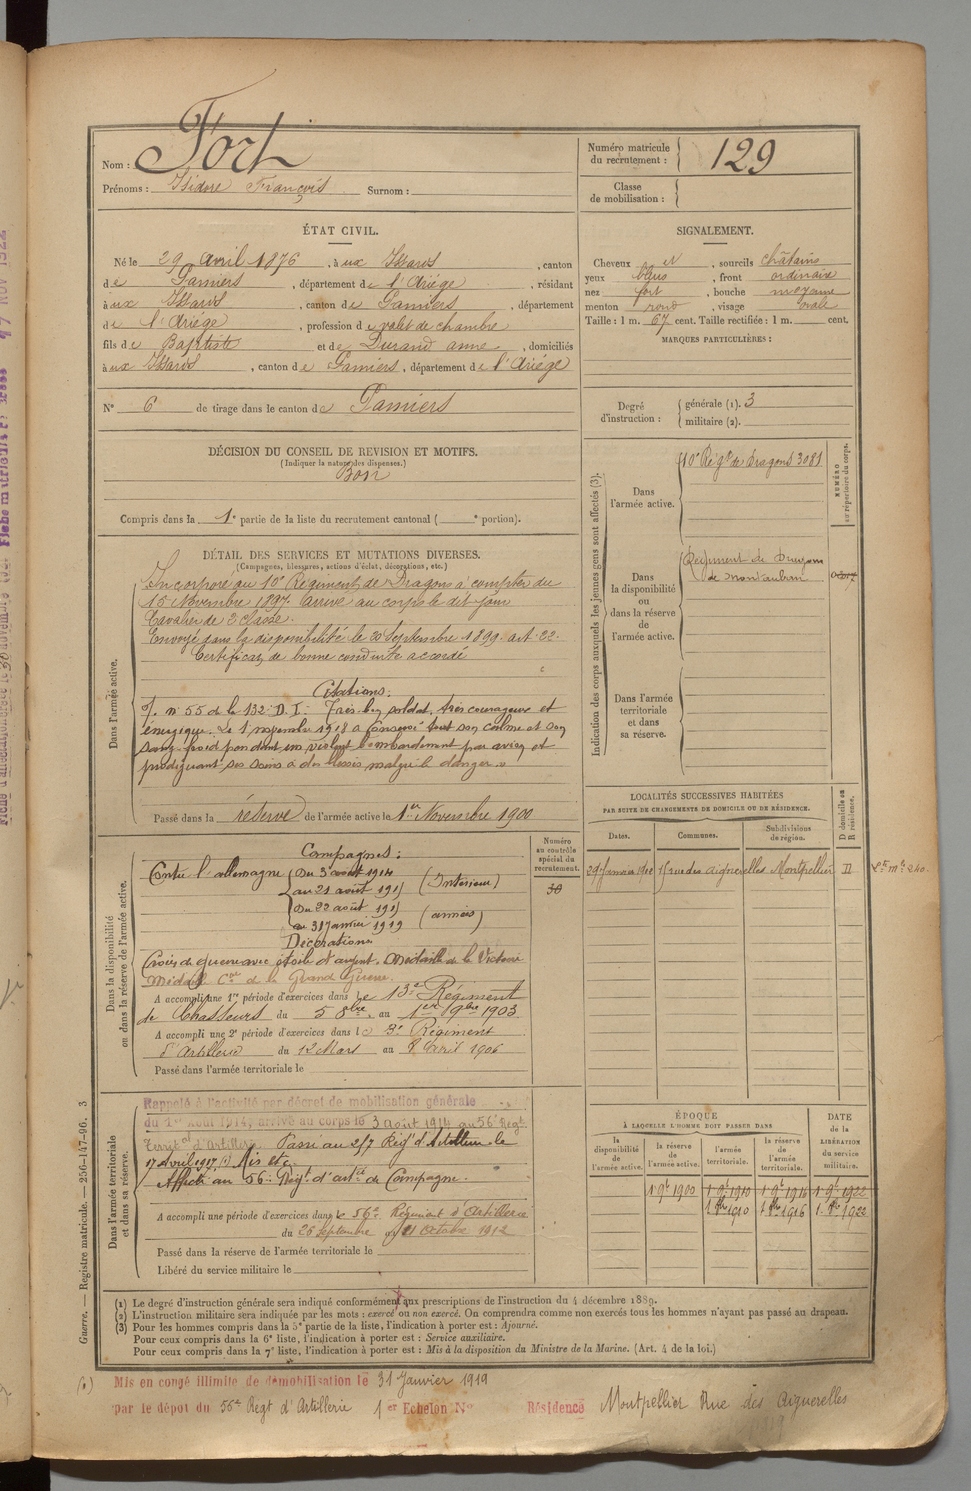 Nom : Fort
Prénoms : Isidore François Surnom :
Numéro matricule du recrutement : 129
Classe de mobilisation :
ÉTAT CIVIL.
Né le 29 avril 1876, à ux Issards, canton
de Pamiers, département de l'Ariège, résidant
à ux Issards, canton de Pamiers, département
de l'Ariège, profession de valet de chambre
fils de Baptiste et de Durand anne, domiciliés
à ux Issards, canton de Pamiers, département de l'Ariège
N° 6 de tirage dans le canton de Pamiers
SIGNALEMENT.
Cheveux et, sourcils châtains
yeux bleus, front ordinaire
nez fort, bouche moyenne
menton rond, visage ovale
Taille : 1 m. 67 cent. Taille rectifiée : 1 m. cent.
MARQUES PARTICULIÈRES :
Degré d'instruction : générale (1). 3
militaire (2).
DÉCISION DU CONSEIL DE REVISION ET MOTIFS.
(Indiquer la nature des dispenses.)
Bon
Compris dans la 1e partie de la liste du recrutement cantonal ( e portion).
DÉTAIL DES SERVICES ET MUTATIONS DIVERSES.
(Campagnes, blessures, actions d'éclat, décorations, etc.)
Dans l'armée active.
Incorporé au 10e Régiment de Dragons à compter du
15 Novembre 1897. arrivé au corps le dit jour
Cavalier de 2e classe.
Envoyé dans la disponibilité le 20 Septembre 1899. art. 22.
Certificat de bonne conduite accordé
Citations.
n° 55 de la 132e D. I. Très bon soldat, très courageux et
énergique. Le 1 novembre 1918 a conservé tout son calme et son
sang-froid pendant un violent bombardement par avion et
prodiguant ses soins à des blessés malgré le danger."
Passé dans la réserve de l'armée active le 1er Novembre 1900
Indication des corps auxquels les jeunes gens sont affectés (3).
NUMÉRO au répertoire du corps.
Dans l'armée active.
10e Régt de Dragons 3081
Dans la disponibilité ou dans la réserve de l'armée active.
Régiment de Dragons
de Montauban
Dans l'armée territoriale et dans sa réserve.
LOCALITÉS SUCCESSIVES HABITÉES
PAR SUITE DE CHANGEMENTS DE DOMICILE OU DE RÉSIDENCE.
Dates. Communes. Subdivisions de région. D domicile ou R résidence.
29 Janvier 1902 15 rue des aiguerelles Montpellier D
Dans la disponibilité ou dans la réserve de l'armée active.
Numéro au contrôle spécial du recrutement.
30
Campagnes :
Contre l'allemagne Du 3 août 1914
au 21 août 1915 (Intérieur)
Du 22 août 1915
au 31 janvier 1919 (armées)
Décorations
Croix de guerre avec étoile d'argent. Médaille de la Victoire
Médaille Cve de la Grande Guerre.
A accompli une 1re période d'exercices dans le 13e Régiment
de Chasseurs du 5 8bre au 1er 9bre 1903
A accompli une 2e période d'exercices dans le 3e Régiment
d'Artillerie du 12 Mars au 8 avril 1906
Passé dans l'armée territoriale le
Dans l'armée territoriale et dans sa réserve.
Rappelé à l'activité par décret de mobilisation générale
du 1er Août 1914, arrivé au corps le 3 août 1914 au 56e Régt
Territal d'Artillerie. Passé au 2/7 Régt d'Artillerie le
17 avril 1917 (1) Mis etc.
Affecté au 56e Régt d'artie de Campagne.
A accompli une période d'exercices dans le 56e Régiment d'Artillerie
du 26 Septembre au 11 Octobre 1912
Passé dans la réserve de l'armée territoriale le
Libéré du service militaire le
ÉPOQUE
À LAQUELLE L'HOMME DOIT PASSER DANS
la disponibilité de l'armée active. la réserve de l'armée active. l'armée territoriale. la réserve de l'armée territoriale.
DATE de la LIBÉRATION du service militaire.
1. 9e 1900 1. 9e 1910 1. 9e 1916 1. 9e 1922
1. 8bre 1910 1. 8bre 1916 1. 8bre 1922
Guerre. — Registre matricule. — 256-147-96. 3
(1) Le degré d'instruction générale sera indiqué conformément aux prescriptions de l'instruction du 4 décembre 1889.
(2) L'instruction militaire sera indiquée par les mots : exercé ou non exercé. On comprendra comme non exercés tous les hommes n'ayant pas passé au drapeau.
(3) Pour les hommes compris dans la 5e partie de la liste, l'indication à porter est : Ajourné.
Pour ceux compris dans la 6e liste, l'indication à porter est : Service auxiliaire.
Pour ceux compris dans la 7e liste, l'indication à porter est : Mis à la disposition du Ministre de la Marine. (Art. 4 de la loi.)
(1) Mis en congé illimité de démobilisation le 31 Janvier 1919
par le dépôt du 56e Regt d'Artillerie 1er Echelon N° Résidence Montpellier Rue des Aiguerelles